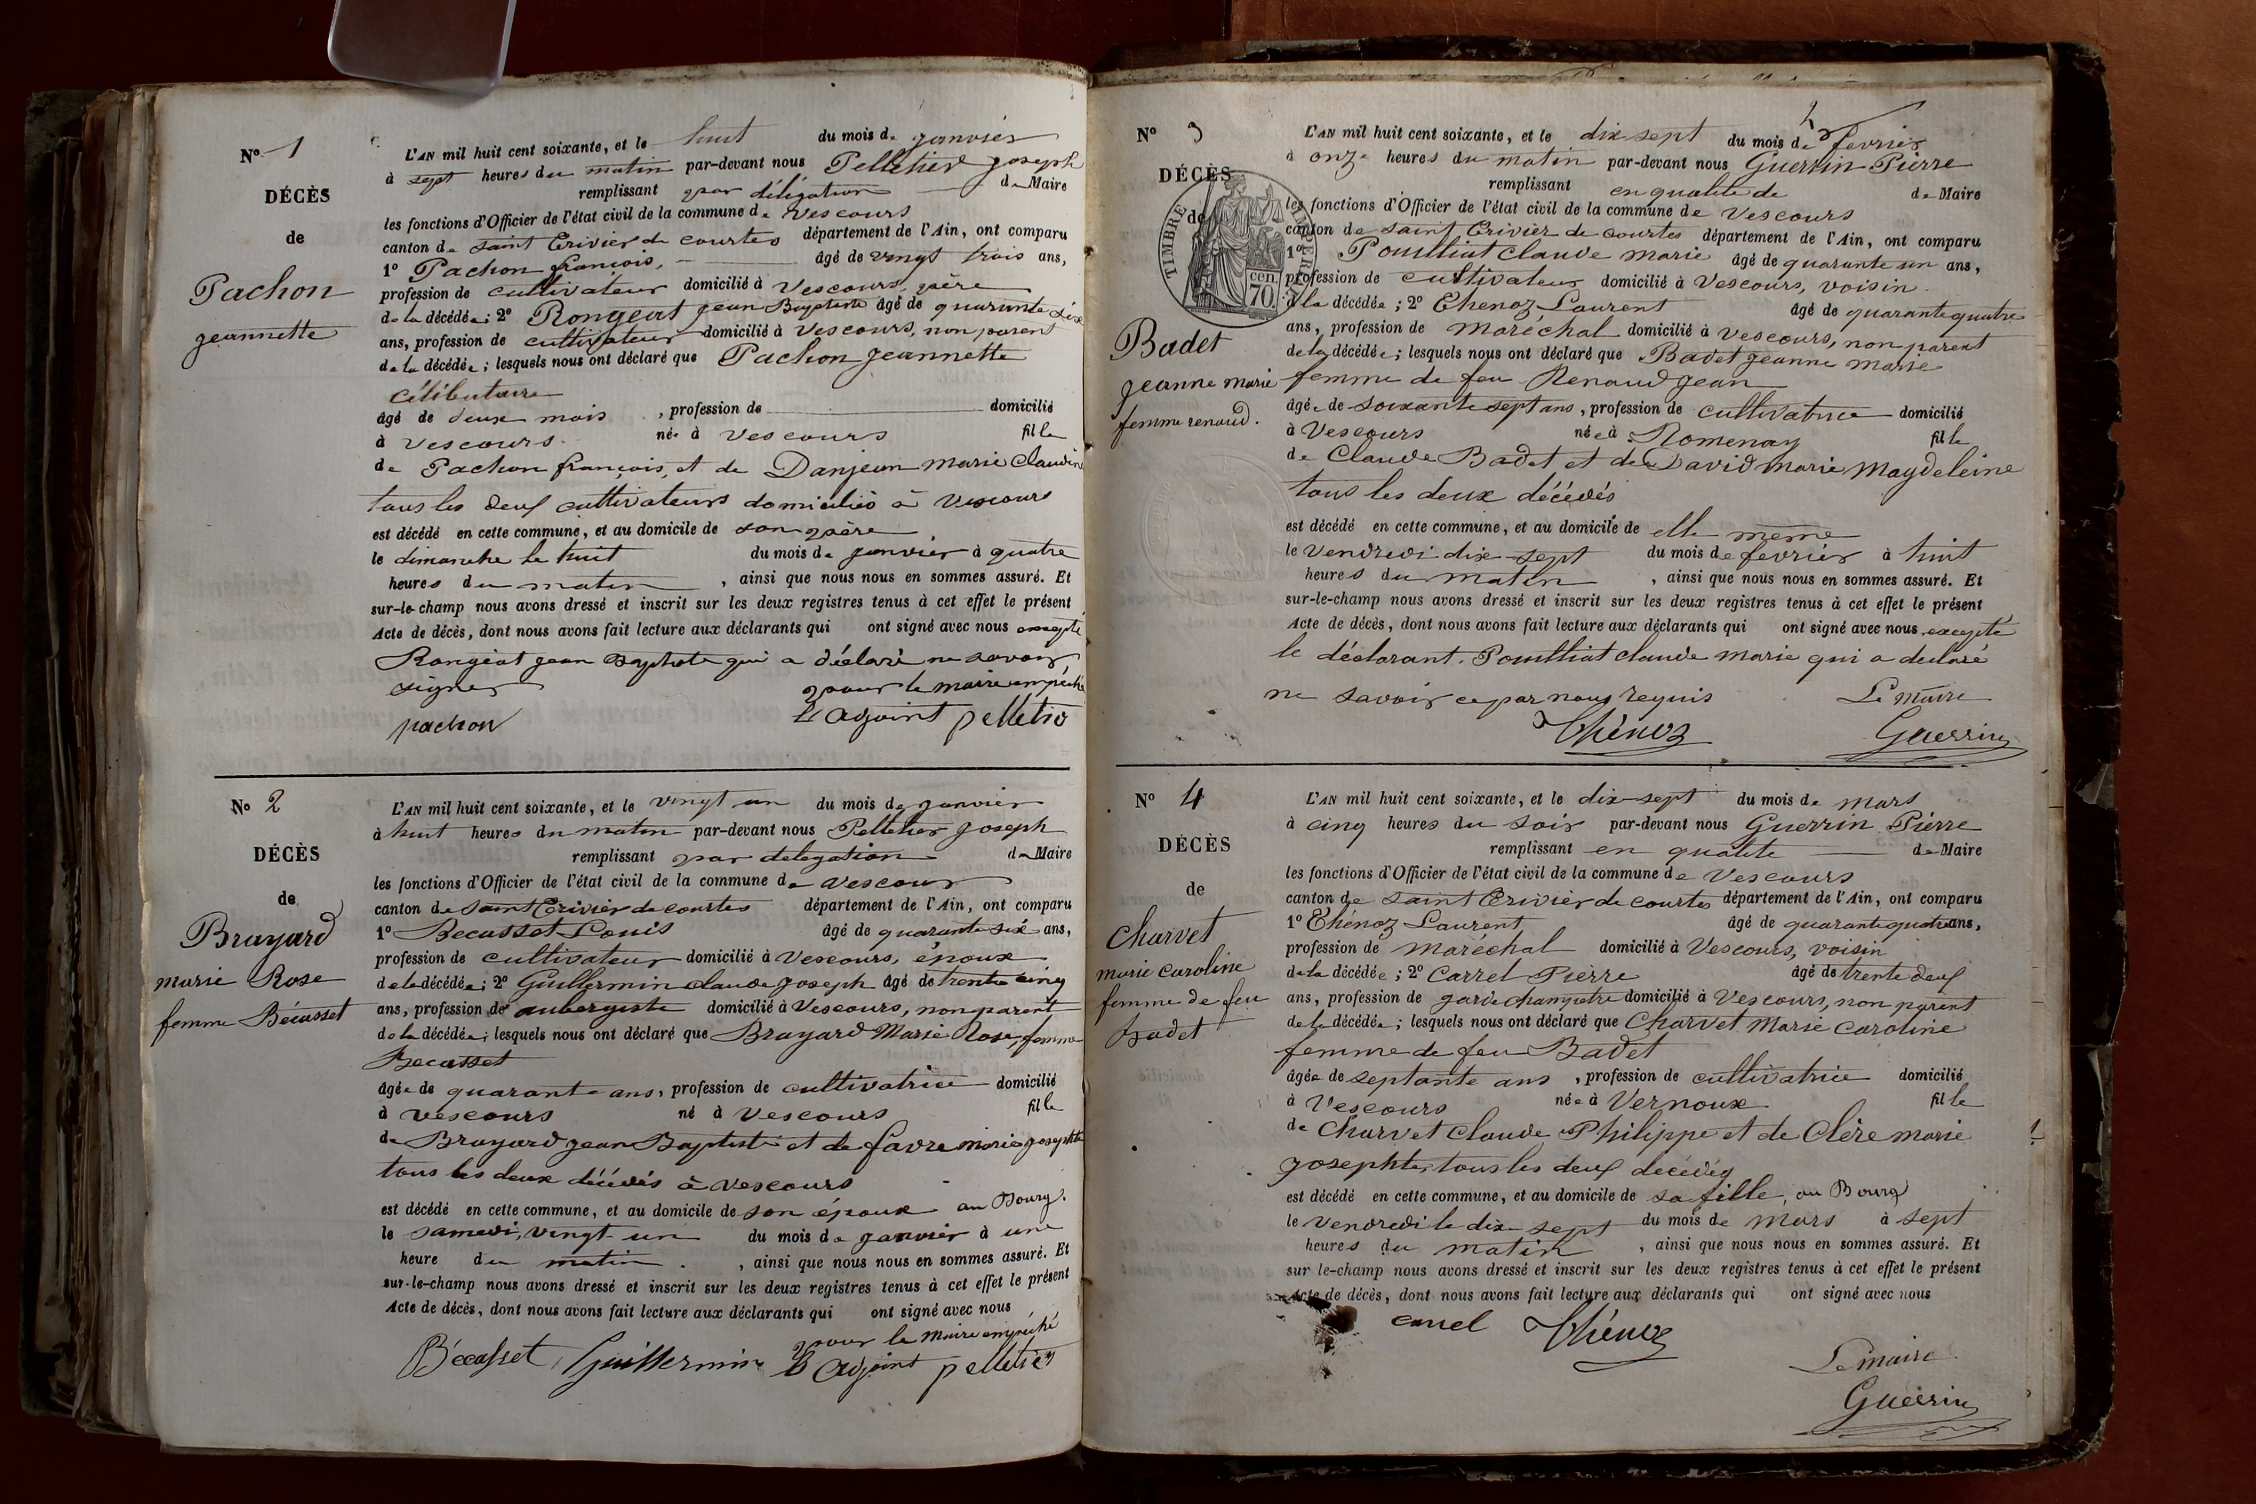 N° 1
DÉCÈS
de
Pachon
jeannette
L'AN mil huit cent soixante, et le huit du mois de janvier
à sept heures du matin par-devant nous Pelletier joseph
remplissant par délégation de Maire
les fonctions d'Officier de l'état civil de la commune de Vescours
canton de saint Trivier de courtes département de l'Ain, ont comparu
1° Pachon françois, âgé de vingt trois ans,
profession de cultivateur domicilié à Vescours, père
de la décédée; 2° Rongeat jean Baptiste âgé de quarante six
ans, profession de cultivateur domicilié à Vescours, non parent
de la décédée; lesquels nous ont déclaré que Pachon jeannette
célibataire
âgé de deux mois, profession de domicilié
à Vescours née à Vescours fille
de Pachon françois, et de Danjean marie claudin
tous les deux cultivateurs domiciliés à Vescours
est décédé en cette commune, et au domicile de son père
le dimanche le huit du mois de janvier à quatre
heures du matin, ainsi que nous nous en sommes assuré. Et
sur-le-champ nous avons dressé et inscrit sur les deux registres tenus à cet effet le présent
Acte de décès, dont nous avons fait lecture aux déclarants qui ont signé avec nous excepté
Rongeat jean Baptiste qui a déclaré ne savoir
signer pour le maire empêché
pachon l'adjoint pelletier
N° 2
DÉCÈS
de
Brayard
marie Rose
femme Bécasset
L'AN mil huit cent soixante, et le vingt un du mois de janvier
à huit heures du matin par-devant nous Pelletier joseph
remplissant par delegation de Maire
les fonctions d'Officier de l'état civil de la commune de Vescours
canton de saint Trivier de courtes département de l'Ain, ont comparu
1° Becasset Louis âgé de quarante six ans,
profession de cultivateur domicilié à Vescours, époux
de la décédée; 2° Guillermin claude joseph âgé de trente cinq
ans, profession de aubergiste domicilié à Vescours, non parent
de la décédée; lesquels nous ont déclaré que Brayard Marie Rose, femme
Becasset
âgée de quarante ans, profession de cultivatrice domicilié
à Vescours né à Vescours fille
de Brayard jean Baptiste et de favre marie josephte
tous les deux décédés à Vescours
est décédé en cette commune, et au domicile de son époux au Bourg.
le samedi, vingt un du mois de janvier à une
heure du matin, ainsi que nous nous en sommes assuré. Et
sur-le-champ nous avons dressé et inscrit sur les deux registres tenus à cet effet le présent
Acte de décès, dont nous avons fait lecture aux déclarants qui ont signé avec nous
pour le maire empêché
Bécasset Guillermin l'adjoint pelletier
N° 3
DÉCÈS
de
TIMBRE IMPERIAL
70 cen.
Badet
jeanne marie
femme renaud.
L'AN mil huit cent soixante, et le dix sept du mois de fevrier
à onze heures du matin par-devant nous Guerrin Pierre
remplissant en qualité de de Maire
les fonctions d'Officier de l'état civil de la commune de Vescours
canton de saint Trivier de courtes département de l'Ain, ont comparu
1° Pouilliat claude marie âgé de quarante un ans,
profession de cultivateur domicilié à Vescours, voisin
de la décédée; 2° Thenoz Laurent âgé de quarante quatre
ans, profession de maréchal domicilié à Vescours, non parent
de la décédée; lesquels nous ont déclaré que Badet jeanne marie
femme de feu Renaud jean
âgée de soixante sept ans, profession de cultivatrice domicilié
à Vescours née à Romenay fille
de Claude Badet et de David marie magdeleine
tous les deux décédés
est décédé en cette commune, et au domicile de elle même
le Vendredi dix sept du mois de fevrier à huit
heures du matin, ainsi que nous nous en sommes assuré. Et
sur-le-champ nous avons dressé et inscrit sur les deux registres tenus à cet effet le présent
Acte de décès, dont nous avons fait lecture aux déclarants qui ont signé avec nous, excepté
le déclarant, Pouilliat claude marie qui a declaré
ne savoir ce par nous requis Le maire
Thénoz Guerrin
N° 4
DÉCÈS
de
Charvet
marie caroline
femme de feu
badet
L'AN mil huit cent soixante, et le dix sept du mois de mars
à cinq heures du soir par-devant nous Guerrin Pierre
remplissant en qualité de Maire
les fonctions d'Officier de l'état civil de la commune de Vescours
canton de saint Trivier de courtes département de l'Ain, ont comparu
1° Thénoz Laurent âgé de quarante quatre ans,
profession de maréchal domicilié à Vescours, voisin
de la décédée; 2° Carrel Pierre âgé de trente deux
ans, profession de garde champetre domicilié à Vescours, non parent
de la décédée; lesquels nous ont déclaré que Charvet Marie Caroline
femme de feu Badet
âgée de septante ans, profession de cultivatrice domicilié
à Vescours née à Vernoux fille
de Charvet Claude Philippe et de Clère marie
josephte, tous les deux décédés
est décédé en cette commune, et au domicile de sa fille, au Bourg
le Vendredi le dix sept du mois de mars à sept
heures du matin, ainsi que nous nous en sommes assuré. Et
sur le-champ nous avons dressé et inscrit sur les deux registres tenus à cet effet le présent
Acte de décès, dont nous avons fait lecture aux déclarants qui ont signé avec nous
carrel Thénoz
Le maire
Guerrin